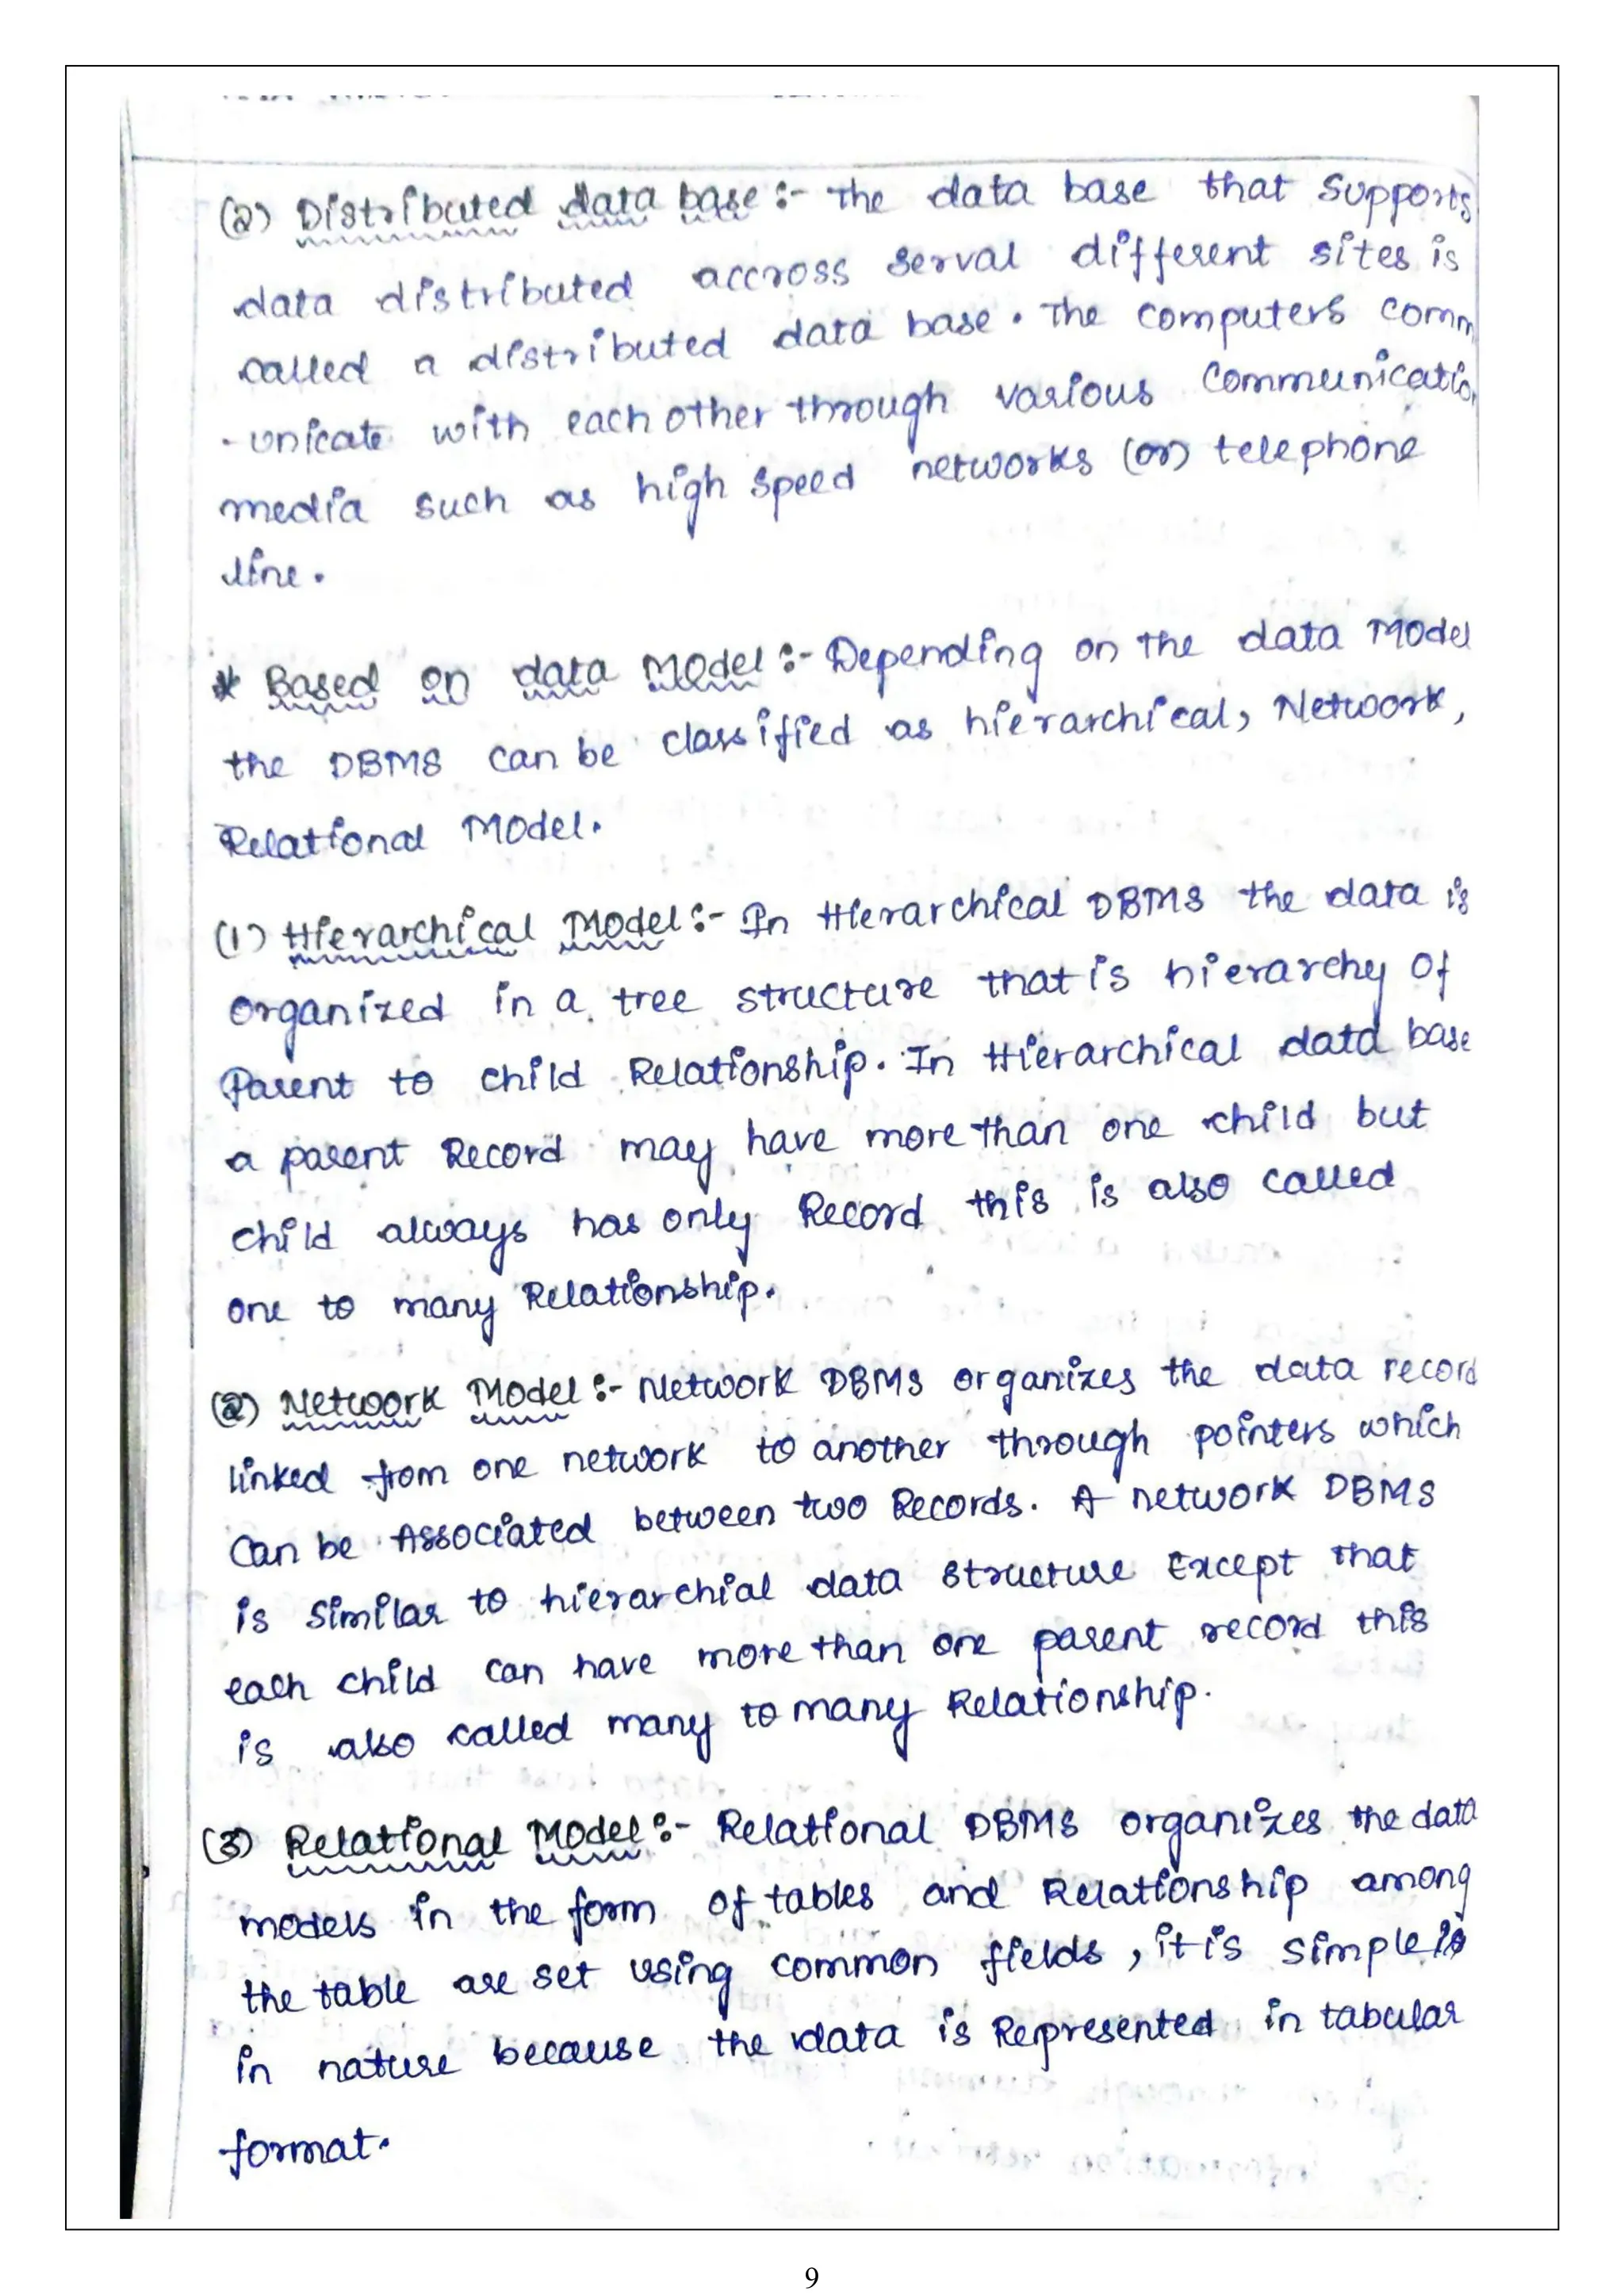 (2) Distributed data base :- The data base that supports
data distributed accross serval different sites is
called a distributed data base. The computers comm
-unicate with each other through various communicatio
media such as high speed networks (or) telephone
line.
* Based on data Model :- Depending on the data Model
the DBMS can be classified as hierarchical, Network,
Relational Model.
(1) Hierarchical Model :- In Hierarchical DBMS the data is
organized in a tree structure that is hierarchy of
Parent to child Relationship. In Hierarchical data base
a parent Record may have more than one child but
child always has only Record this is also called
one to many Relationship.
(2) Network Model :- Network DBMS organizes the data record
linked from one network to another through pointers which
can be Associated between two Records. A network DBMS
is similar to hierarchial data structure Except that
each child can have more than one parent record this
is also called many to many Relationship.
(3) Relational Model :- Relational DBMS organizes the data
models in the form of tables and Relationship among
the table are set using common fields, it is simple is
in nature because the data is Represented in tabular
format.
9